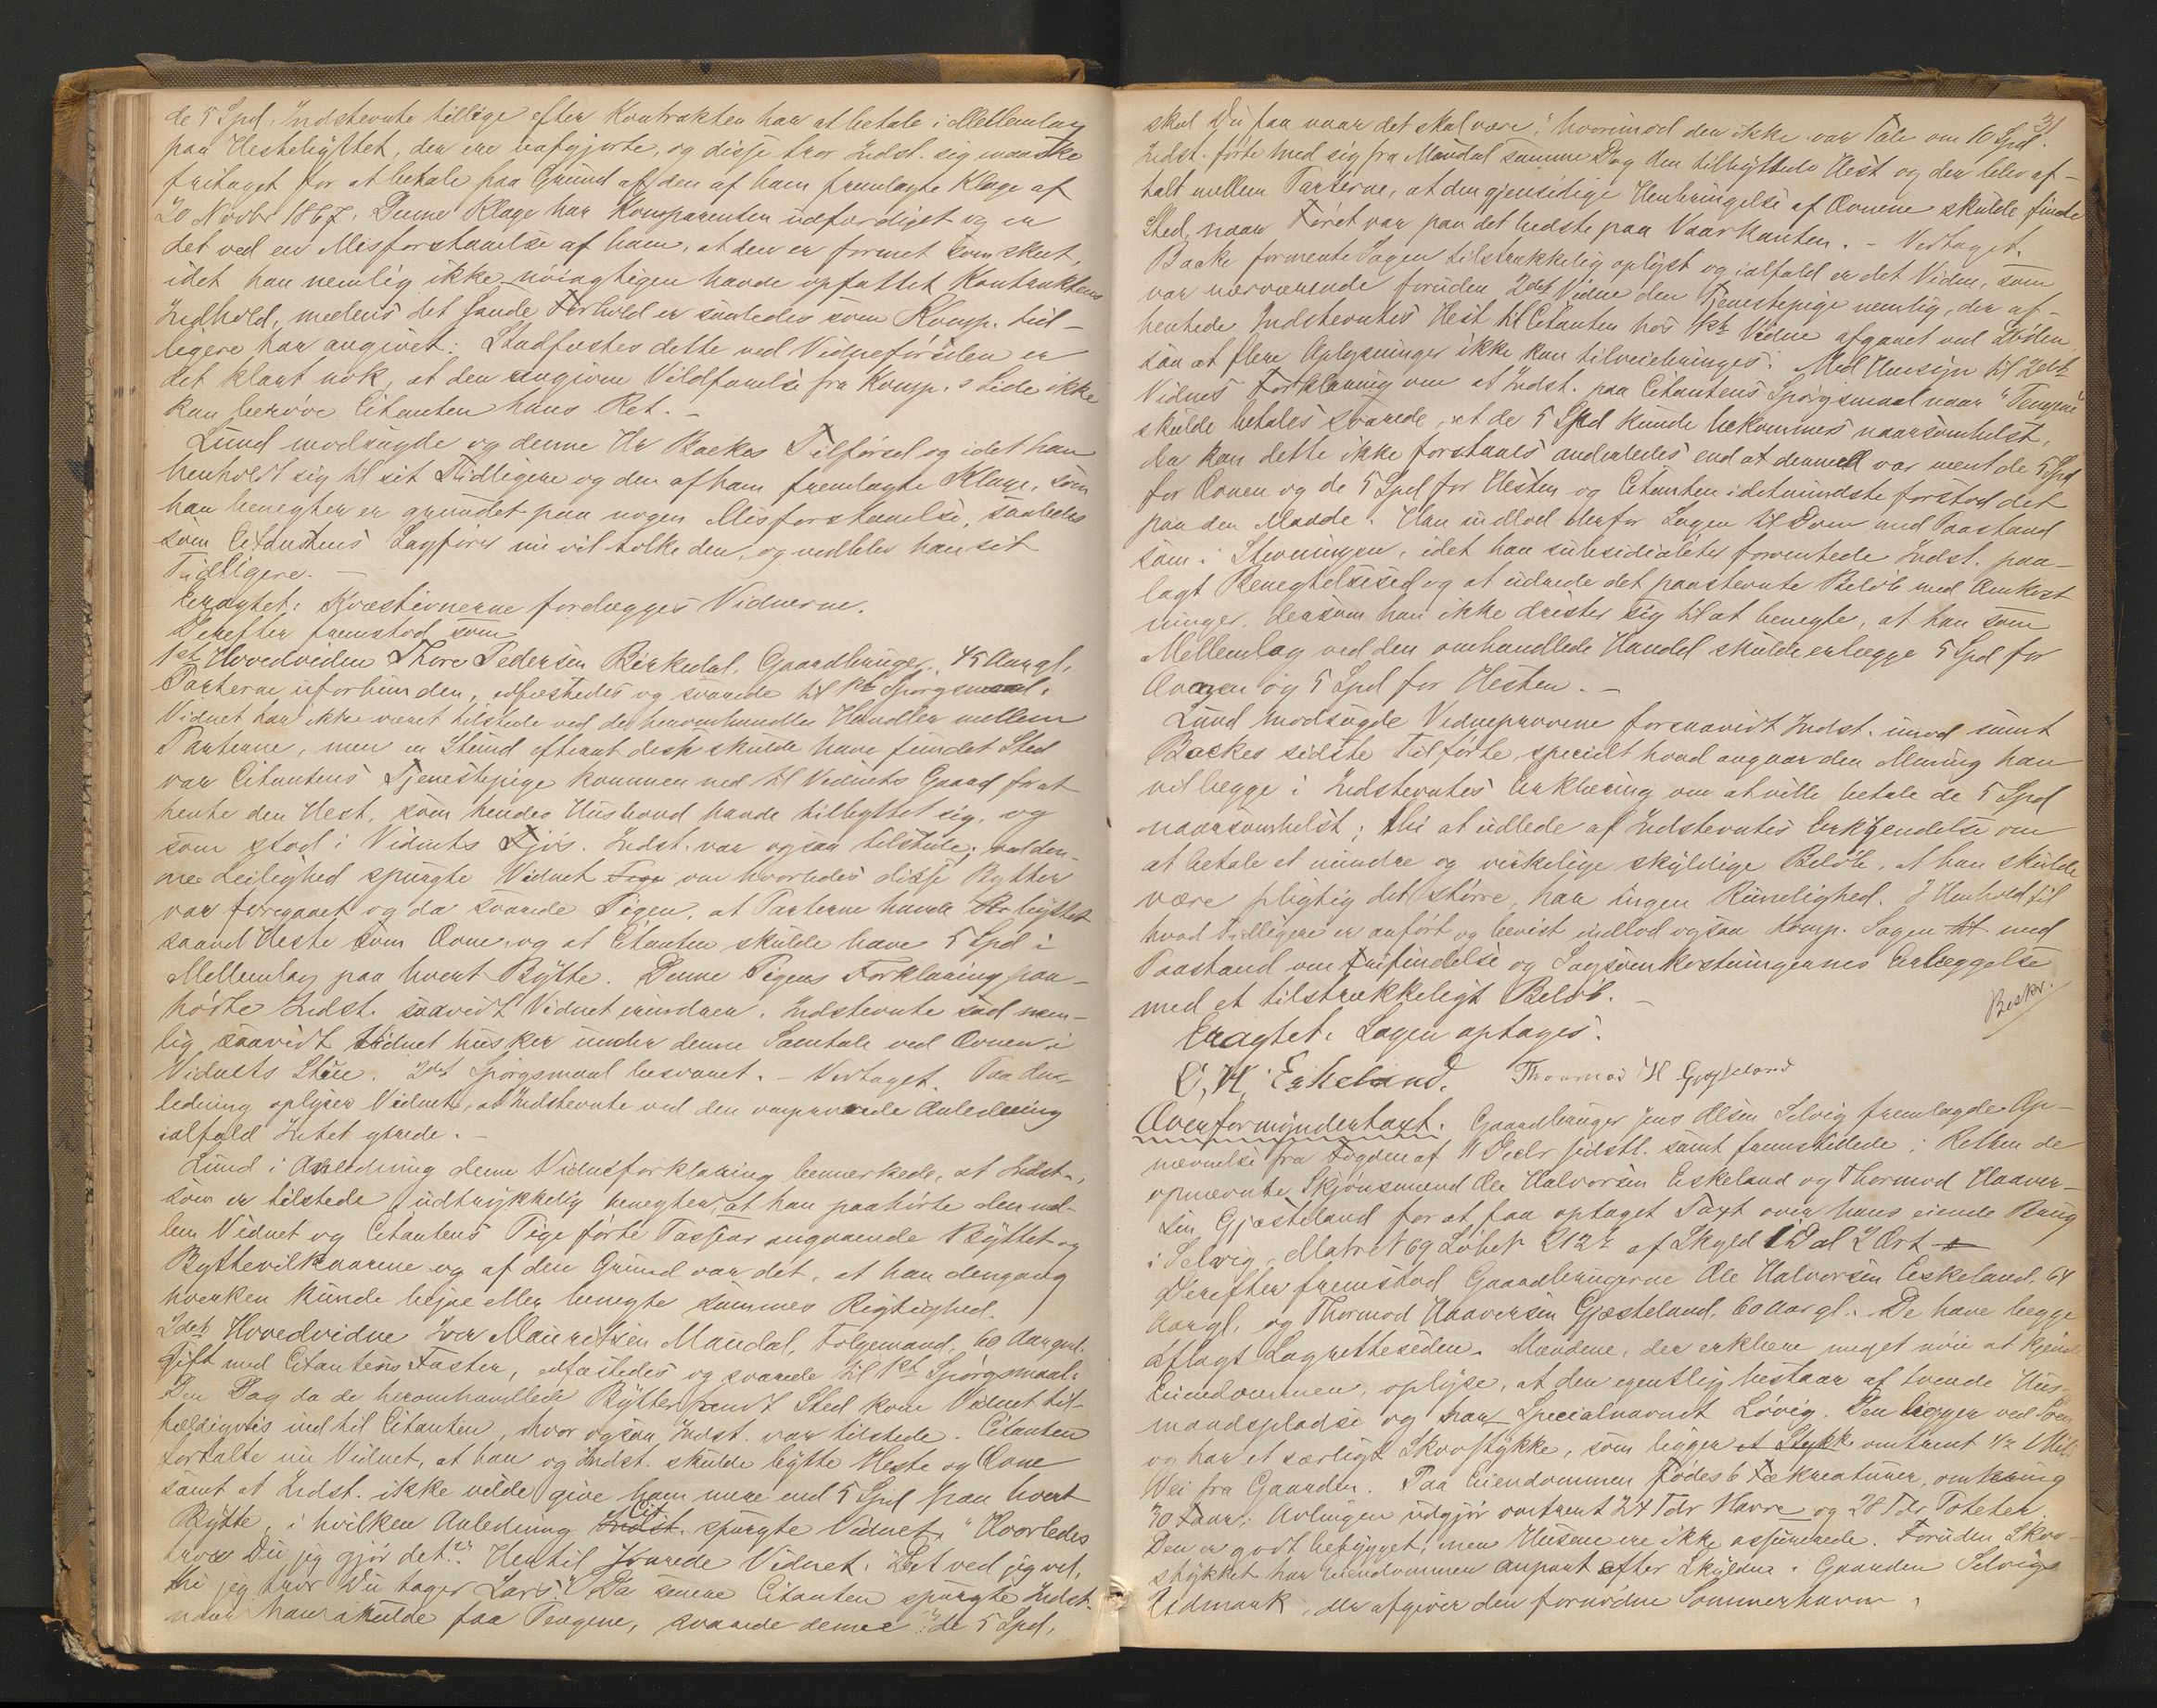 de 5 Spd. Indstevnte tillige efter Kontrakten har at betale i Mellemlag
paa Hestebyttet, der ere uafgjorte, og disse tror Indst. sig maaske
fritaget for at betale paa Grund af den af ham fremlagte Klage af
20 Novbr 1867. Denne Klage har Komparenten udfærdiget og er
det ved en Misforstaaelse af ham, at den er formet som skeet,
idet han nemlig ikke nøiagtigen havde opfattet Kontraktens
Indhold, medens det sande Forhold er saaledes som Komp. tid-
ligere har angivet. Stadfæstes dette ved Vidneførselen er
det klart nok, at den angivne Vildfarelse fra Komp.s Side ikke
kan berøve Citanten hans Ret. –
Lund modsagde og denne Hr Backes Tilførsel og idet han
henholdt sig til sit Tidligere og den af ham fremlagte Klage, som
han benegter er grundet paa nogen Misforstaaelse, saaledes
som Citantens Sagfører nu vil tolke den, og vedblev han sit
Tidligere. –
Eragtet: Kvæstionerne forelægges Vidnerne.
Derefter fremstod som
1ste Hovedvidne Thore Pedersen Birkedal, Gaardbruger, 45 Aar gl.
Parterne uforbunden, edfæstedes og svarede til 1ste Spørgsmaal:
Vidnet har ikke været tilstede ved de heromhandlede Handler mellem
Parterne, men en Stund efterat disse skulde have fundet Sted
var Citantens Tjenestepige kommen ned til Vidnets Gaard for at
hente den Hest, som hendes Husbond havde tilbyttet sig, og
som stod i Vidnets Fjøs. Indst. var ogsaa tilstede; ved den-
ne Leilighed spurgte Vidnet om hvorledes disse Bytter
var foregaaet og da svarede Pigen, at Parterne havde byttet
saavel Heste som Ovne, og at Citanten skulde have 5 Spd i
Mellemlag paa hvert Bytte. Denne Pigens Forklaring paa-
hørte Indst. saavidt Vidnet erindrer. Indstevnte sad nem-
lig saavidt Vidnet husker under denne Samtale ved Ovnen i
Vidnets Stue. 2det Spørgsmaal besvaret. – Vedtaget. Paa An-
ledning oplyser Vidnet, at Indstevnte ved den omprovede Anledning
ialfald Intet ytrede. –
Lund i Anledning denne Vidneforklaring bemærkede, at Indst.,
som er tilstede udtrykkelig benegter, at han paahørte den mel-
lem Vidnet og Citantens Pige førte Passiar angaaende Byttet og
Byttevilkaarene og af den Grund var det, at han dengang
hverken kunde bejae eller benegte sammes Rigtighed.
2det Hovedvidne Iver Mauritzen Mandal, Følgemand, 60 Aar gml.
gift med Citantens Faster, edfæstedes og svarede til 1ste Spørgsmaal:
Den Dag da de heromhandlede Bytter fandt Sted kom Vidnet til-
fældigvis ind til Citanten, hvor ogsaa Indst. var tilstede. Citanten
fortalte nu Vidnet, at han og Indst. skulde bytte Heste og Ovne
samt at Indst. ikke vilde give ham mere end 5 Spd paa hvert
Bytte, i hvilken Anledning Cit. spurgte Vidnet: "Hvorledes
tror Du jeg gjør det?" Hertil svarede Vidnet: "Det ved jeg vel,
thi jeg tror Du tager Lars". Da senere Citanten spurgte Indst.
naar han skulde faa Pengene, svarede denne: "de 5 Spd,
31
skal Du faa naar det skal være", hvorimod der ikke var Tale om 10 Spd.
Indst. førte med sig fra Mandal samme Dag den tilbyttede Hest og der blev af-
talt mellem Parterne, at den gjensidige Henbringelse af Ovnene skulde finde
Sted, naar Føret var paa det bedste paa Vaarkanten. – Vedtaget.
Backe formente Sagen tilstrækkelig oplyst og ialfald er det Vidne, som
var nærværende foruden 2det Vidne den Tjenestepige nemlig, der af-
hentede Indstevntes Hest til Citanten hos 1ste Vidne afgaaet ved Døden
saa at flere Oplysninger ikke kan tilveiebringes. Med Hensyn til 2det
Vidnes Forklaring om at Indst. paa Citantens Spørgsmaal naar "Pengene"
skulde betales svarede, at de 5 Spd kunde bekommes naarsomhelst,
da kan dette ikke forstaaes anderledes end at dermed var ment de 5 Spd
for Ovnen og de 5 Spd for Hesten og Citanten i detmindste forstod det
paa den Maade. Han indlod derfor Sagen til Dom med Paastand
som i Stevningen, idet han subsidialiter formentede Indst. paa-
lagt Benegtelsesed og at udrede det paastevnte Beløb med Omkost
ninger, dersom han ikke drister sig til at benegte, at han som
Mellemlag ved den omhandlede Handel skulde erlægge 5 Spd for
Ovnen og 5 Spd for Hesten. –
Lund modsagde Vidneprovene forsaavidt Indst. imod samt
Backes sidste Tilførte, specielt hvad angaar den Mening han
vil lægge i Indstevntes Erklæring om at ville betale de 5 Spd
naarsomhelst; thi at udlede af Indstevntes Erkjendelse om
at betale et mindre og virkelige skyldige Beløb, at han skulde
være pligtig det større, har ingen Rimelighed. I Henhold til
hvad Tidligere er anført og bevist indlod ogsaa Komp. Sagen med
Paastand om Frifindelse og Sagsomkostningernes Erlæggelse
med et tilstrækkeligt Beløb. –
Beskr.
Eragtet: Sagen optages.
O. H. Eskeland. Thormod H Gjæseland
Overformyndertaxt. Gaardbruger Jens Olsen Selvig fremlagde Op-
nævnelse fra Fogden af 11 Decbr sidstl. samt fremstillede i Retten de
opnævnte Skjønsmænd Ole Halvorsen Eskeland og Thormod Haaver-
sen Gjæsteland for at faa optaget Taxt over hans eiende Brug
i Selvig, Matr N 69 Løbe N 212 af Skyld 1 Dal 2 Ort
Derefter fremstod Gaardbrugerne Ole Halvorsen Eskeland, 64
Aar gl. og Thormod Haaversen Gjæsteland, 60 Aar gl. De have begge
aflagt Lagretteseden. Mændene, der erklære meget nøie at kjende
Eiendommen, oplyse, at den egentlig bestaar af tvende Hus-
mandspladse og har Specialnavnet Løvig. Den ligger ved Søen
og har et særligt Skovstykke, som ligger omtrent 1/2 Mil
Vei fra Gaarden. Paa Eiendommen fødes 6 Fækreaturer, omkring
30 Faar; Avlingen udgjør omtrent 24 Tdr Havre og 28 Tdr Poteter.
Den er godt bebygget; men Husene ere ikke assurerede. Foruden Skov-
stykket har Eiendommen anpart efter Skylden i Gaarden Selvigs
Udmark, der afgiver den fornødne Sommerhavn,